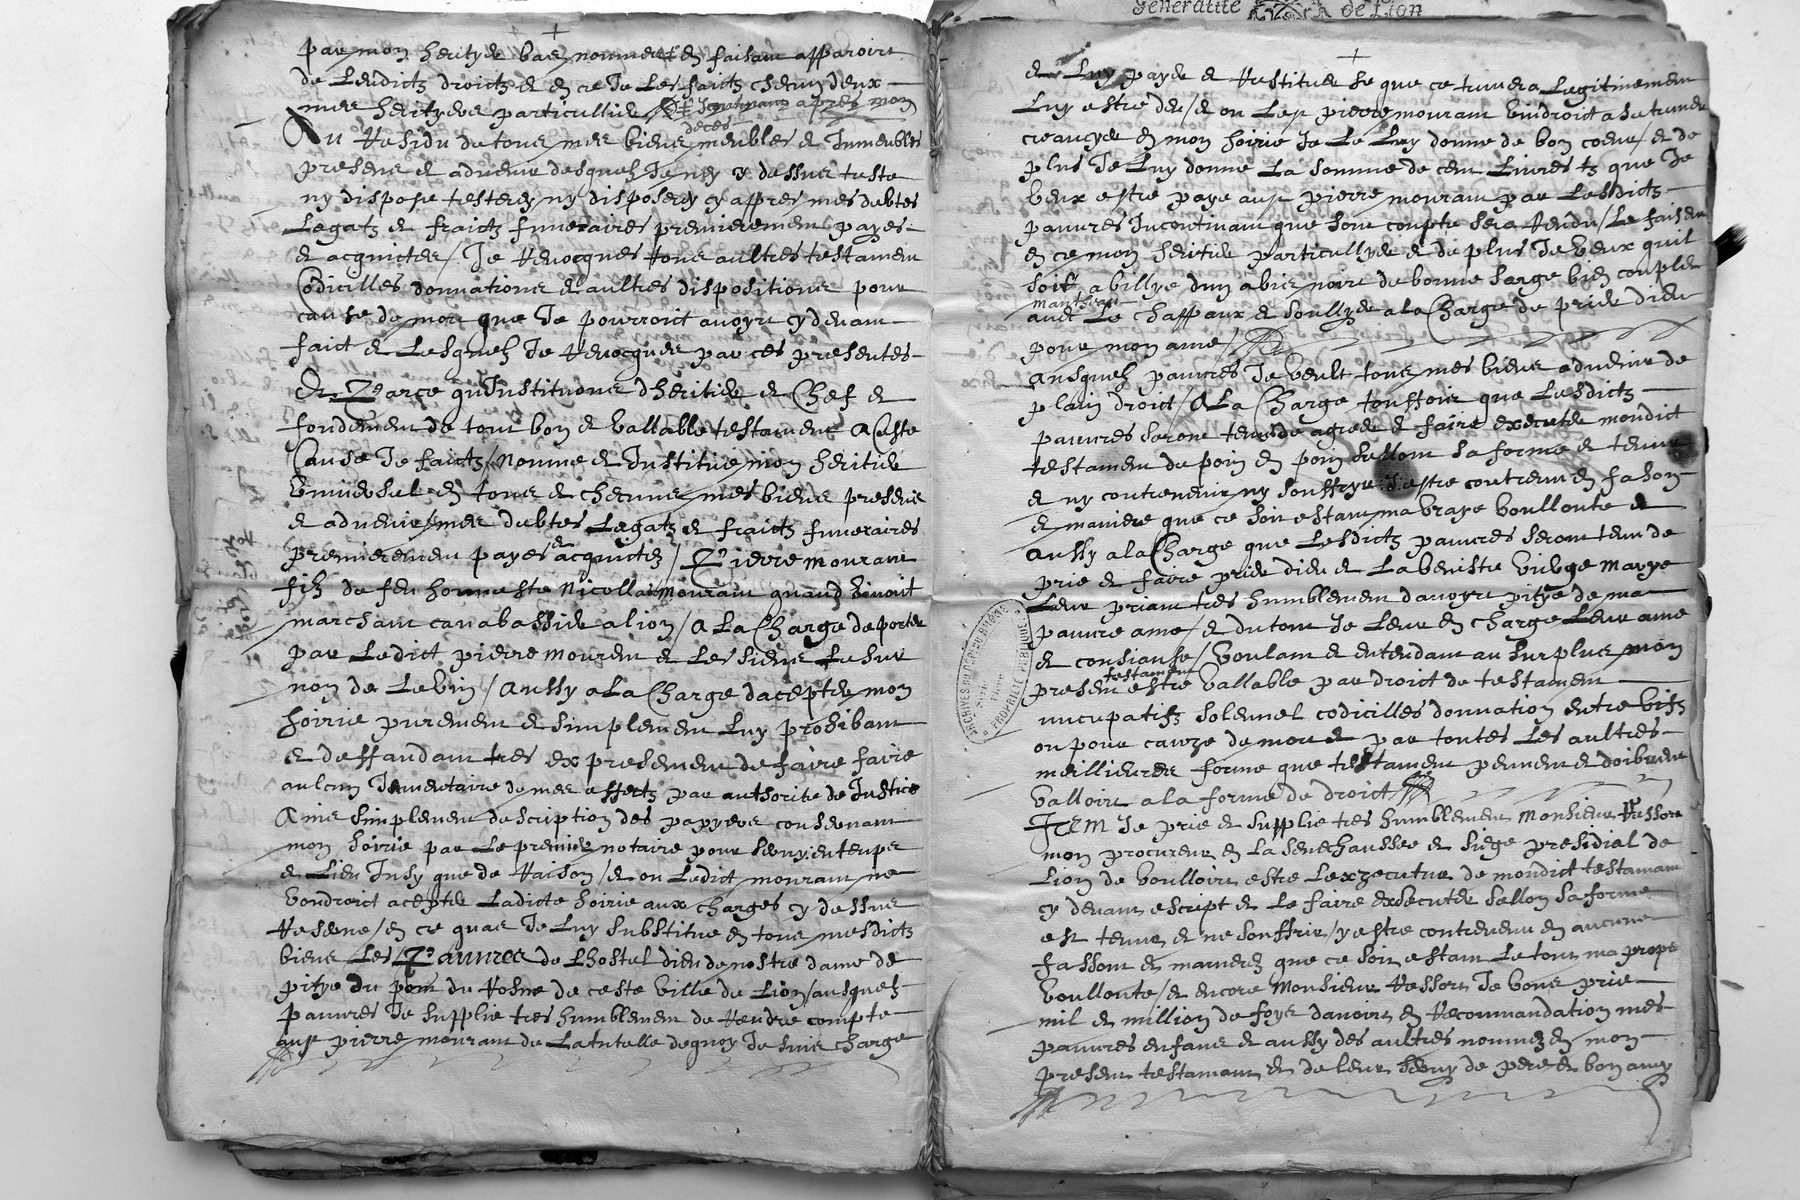 par mon heritier bas nommer et en faisant apparoire
de leudictz droictz et en ce Je les faictz checun deux
mes herityers particulliers et Jncontinant apres mon
deces
Au Residu de tous mes biens meubles et Immeubles
presens et advenir desquelz Je nay cy dessus teste
ny dispose testerey ny disposerey cy appres mes debtes
legatz et fraictz funeraires premierement payes
et acquictes / Je Revocques tous aultres testament
Codicilles donnations et aultres dispositions pour
cause de mort que Je pourroict avoyr cy devant
faict et lesquelz Je Revocques par ces presentes
Et Parce qu Justitutions dheritier et Chef et
fondement de tout bon et vallable testament A Ceste
Cause Je faictz / Nomme et Justitue mon heritier
universel en tous et checuns mes biens presens
et advenir / mes debtes legatz et fraictz funeraires
premierement payes et acquictez / Pierre mourant
filz de feu honneste Nicollas mourant quand vivoit
marchant canabassier a lion / A La Charge de porter
par ledict pierre mourant et les siens le sur
nom de Levin / Aussy a La Charge dacepter mon
hoirie purement et simplement luy prohibant
et deffandant tres expresement de faire faire
aulcun Jnventaire de mes effectz par authorite de Justice
Ains simplement description des papyers consernant
mon hoirie par le premier notaire pour servy en temps
et lieu Jnsy que de Raison / et ou ledict mourant ne
voudroict acepter ladicte hoirie aux charges cy dessus
Reserve / en ce quas Je luy substitue en tous mesdictz
biens les Pauvres de lhostel dieu de nostre dame de
pitye du pont du Rosne de ceste ville de Lion / ausquelz
pauvres Je supplie tres humblement de Rendre compte
aus pierre mourant de la tutelle de quoy Je suis charge
Generalite de Lion
et luy payer et Restituer se que ce truvera legitimement
luy estre deu / et ou les pierre mourant viudroict a se truver
creancyer en mon hoirie Je le luy donne de bon coeur / et de
plus Je luy donne la somme de cent livres tz que Je
veux estre paye aus pierre mourant par lesdictz
pauvres Jncontinant que sont compte sera Rendu / le faisent
en ce mon heritier particullyer et de plus Je veux quil
soit abillye dun abis noir de bonne sarge bien couplet
mantheau
avec le chappaux et soullyer a la Charge de prier dieu
pour mon ame /
Ausquelz pauvres Je veult tous mes biens advenir de
plain droict / A La Charge toussois que lesdictz
pauvres seront tenus de agreer et faire execcuter mondict
testament de poin en poin sellont sa forme et teneur
et ny contrevenir ny souffryr y estre contrevenu en fason
et maniere que ce soit estant ma vraye vollonte et
aussy a la Charge que lesdictz pauvres seront tenu de
prie et faire prier dieu et la beniste vierge marye
leur priant tres humblement davoyr pitye de ma
pauvre ame / et du tout Je leur en charge leur ame
et consianse / voulant et entendant au surplus mon
testament
present estre vallable par droict de testament
nuncupatifz solennel codicilles donnation entre vifz
ou pour cauze de mort et par toutes les aultres
meillieures forme que testament peuvent et doibvent
valloire a la forme de droict
Item Je prie et supplie tres humblement Monsieur Ressort
mon procureur en la senechaussee et siege presidial de
Lion de voulloir estre lexzecuteur de mondict testamant
cy devant escript et le faire exsecuter sellon sa forme
est teneur et ne souffrir / y estre contrevenu en aucune
fassont et manierez que ce soit estant le tout ma propre
voullonte / et encore Monsieur Ressort Je vous prie
mil et million de foys davoir en Recommandation mes
pauvres enfans et aussy des aultres nommez en mon
present testamant et de leur servy de pere et bon amy
ARCHIVES DU DEPT DU RHONE
PROPRIETE PUBLIQUE